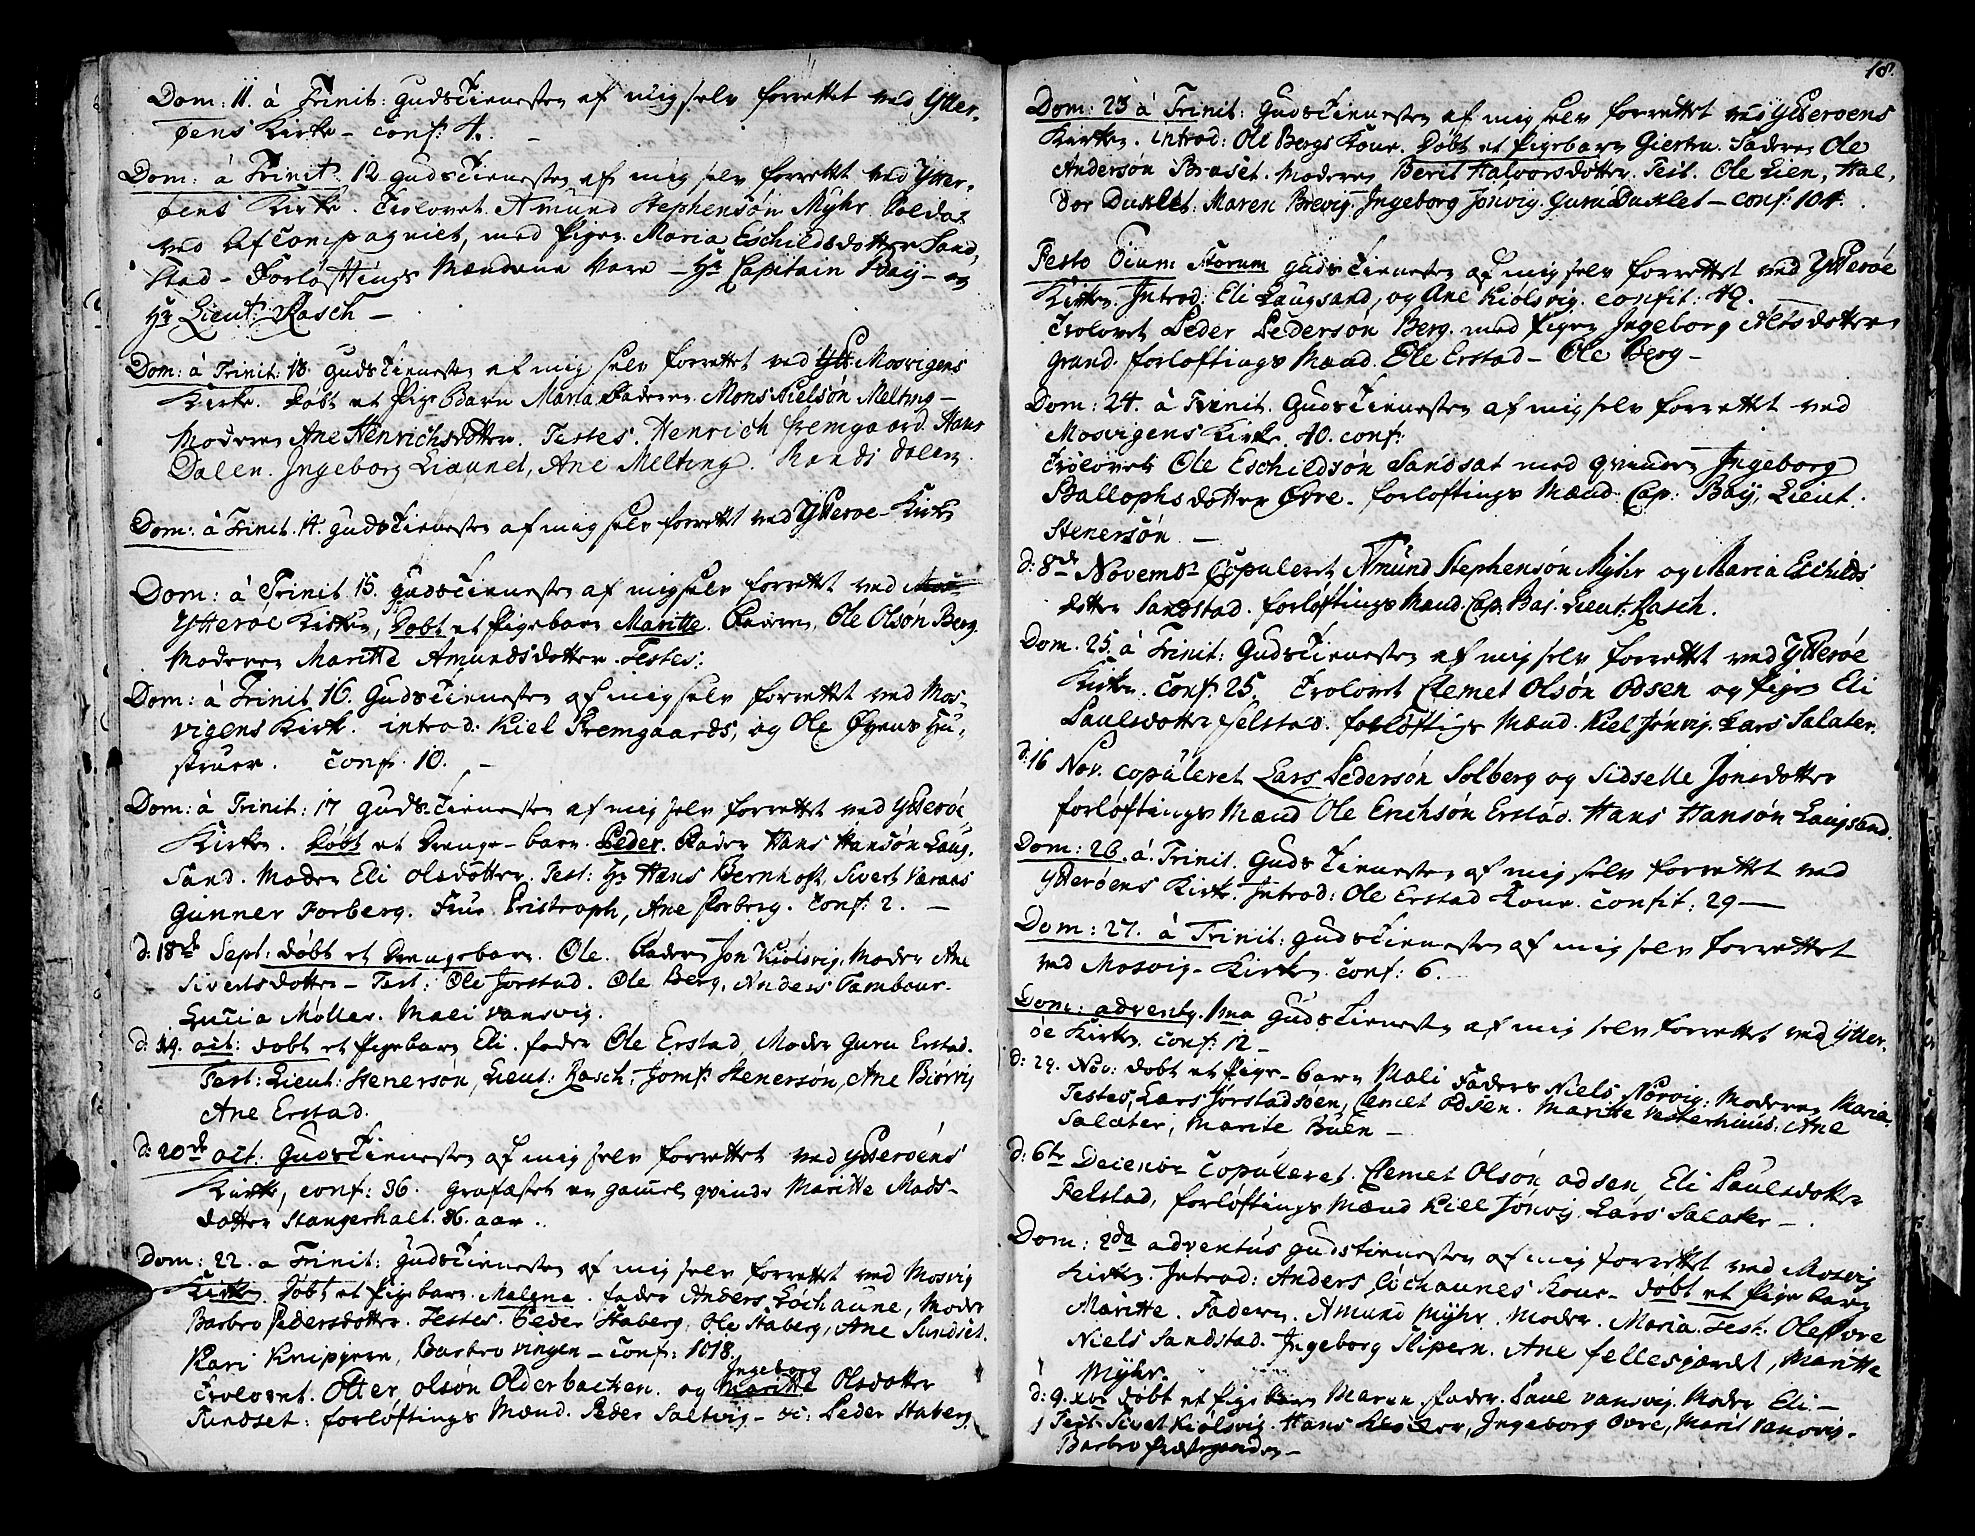 Dom: 11. á Trinit: Gudstienesten af mig selv forrettet ved Ytter,
øens Kirke – conf: 4. –
Dom: á Trinit. 12. Gudstienesten af mig selv forrettet ved Ytter,
øens Kirke. Trolovet Amund Stephensøn Myhr Soldat
ved Compagniet, med Pigen Maria Eschildsdotter Sand,
stad – Forløftings Mændene vare – Hr Capitain Baÿ – og
Hr Lieut: Rasch –
Dom: á Trinit: 13. Gudstienesten af mig selv forrettet ved Ytt Mosvigens
Kirke. Døbt et Pige Barn Maria Faderen Mons Nielsøn Melting –
Moderen Ane Henrichsdotter. Testes. Henrich Fremgaard. Hans
Dalen. Ingeborg Liaunet, Ane Melting. Randi Dalen.
Dom: á Trinit. 14. Gudstienesten af mig selv forrettet ved Ytterøe Kirke
Dom: á Trinit. 15. Gudstienesten af mig selv forrettet ved Mos
Ytterøe Kirken, Døbt et Pigebarn Maritte. Faderen, Ole Olsøn Berg.
Moderen Maritte Amundsdotter Testes:
Dom: á Trinit. 16. Gudstienesten af mig selv forrettet ved Mos,
vigens Kirk. introd. Kiel Fremgaards, og Ole Øyens Hu,
struer. Conf. 10. –
Dom: á Trinit: 17 Gudstienesten af mig selv forrettet ved Ytterøe,
Kirken. Døbt et Drenge-barn. Peder. Fader Hans Hansøn Laug,
sand. Moder Eli Olsdotter. Test: Hr Hans Bernhoft, Sivert Væraas
Gunner Forberg. Frue Pristroph, Ane Forberg. Conf: 2. –
d: 18de Sept: døbt et Drengebarn. Ole. Faderen Jon Kiølsvig. Moder Ane
Sivertsdotter – Test: Ole Jørstad. Ole Berg, Anders Tambour.
Lucia Møller. Mali Vansvig.
d: 19. oct: døbt et Pigebarn Eli. fader Ole Erstad, Moder Guru Erstad.
Test: Lieut: Stenersøn, Lieut: Rasch, Jomf: Stenersøn, Ane Biørvig
Ane Erstad.
d: 20de oct: Gudstienesten af mig selv forrettet ved Ytterøens
Kirke, conf: 36. Grafæstet en gammel qvinde Maritte Mads-
dotter Stangerhalt. 86. aar.
Dom: 22. a Trinit: Gudstienesten af mig selv forrettet ved Mosvig
Kirken. Døbt et Pigebarn. Malena. fader Anders Lochaune, Moder
Barbro Pedersdotter. Testes. Peder Staberg, Ole Staberg, Ane Sundset.
Kari Knipgren, Barbro Vingen – Conf: 1018.
Ingeborg
Trolovet. Otter Olsøn Olderbachen. og Maritte Olsdotter
Sundset: forløftings Mænd. Peder Saltvig – oc: Peder Staberg.
18.
Dom: 23 á Trinit: Gudstienesten af mig selv forrettet ved Ytterøens
Kirken. introd: Ole Bergs Kone. Døbt et Pigebarn Giertru. Faderen Ole
Andersøn Braset. Moderen Berit Halvorsdotter. Test. Ole Lien, Hal,
dor Duklet. Maren Brevig. Ingeborg Jønvig. Guru Duklet – conf: 104.
Festo Omn: Storum Gudstienesten af mig selv forrettet ved Ytterøe
Kirken. Introd: Eli Laugsand, og Ane Kiølsvig. confit: 49.
Trolovet Peder Pedersøn Berg. med Pigen Ingeborg Nelsdotter
grand. forløftings Mænd. Ole Erstad – Ole Berg –
Dom: 24. á Trinit. Gudstienesten af mig selv forrettet ved
Mosvigens Kirke. 40. conf:
Trolovet Ole Eschildsøn Sandsat med qvinden Ingeborg
Ballophsdotter Øvre. forløftings Mænd Cap: Baÿ, Lieut.
Stenersøn. –
d: 8de Novembr Copuleret Amund Stephensøn Myhr og Maria Eschilds
dotter Sandstad. forløftings Mænd. Cap. Baj. Lieut. Rasch.
Dom. 25. á Trinit: Gudstienesten af mig selv forrettet ved Ytterøe
Kirken. Conf: 25. Trolovet Clemet Olsøn Odsen og Pigen Eli
Paulsdotter Felstad. forløftigs Mænd. Kiel Jønvig. Lars Salater.
d: 16 Nov. copuleret Lars Pedersøn Solberg og Sidselle Jonsdotter
forløftings Mænd Ole Erichsøn Erstad. Hans Hansøn Laugsand.
Dom: 26. á Trinit. Gudstienesten af mig selv forrettet ved
Ytterøens Kirke. Introd: Ole Erstad Kone. confit: 29 –
Dom: 27. á Trinit: Gudstienesten af mig selv forrettet
ved Mosvig – Kirken. conf: 6.
Dom: advents. 1ma Gudstienesten af mig selv forrettet ved Ytter,
øe Kirken. conf: 12 –
d: 29. Nov: døbt et Pige-barn Mali Faderen Niels Norvig. Moderen Maria
Testes, Lars Jørstadsøen, Clemet Odsen. Maritte Vesterhuus. Ane
Salater, Marite Buen –
d: 6te Decembr Copuleret. Clemet Olsøn Odsen Eli Paulsdotter
Felstad, forløftings Mænd Kiell Jønvig. Lars Salater –
Dom: 2da adventus Gudstienesten af mig forrettet ved Mosvig
Kirken. Introd: Anders Lochaunes Kone – døbt et Pige barn
Maritte. Faderen. Amund Myhr. Moder. Maria. Test. Ole Øvre
Niels Sandstad. Ingeborg Slipern. Ane fellesjordet, Maritte
Myhr.
d: 9. xbr døbt et Pigebarn Maren fader. Paul Vansvig. Moder Eli –
Test. Sivert Kiølsvig. Hans, Ingeborg Øvre, Marit Vansvig.
Barbro Præstegaarden –